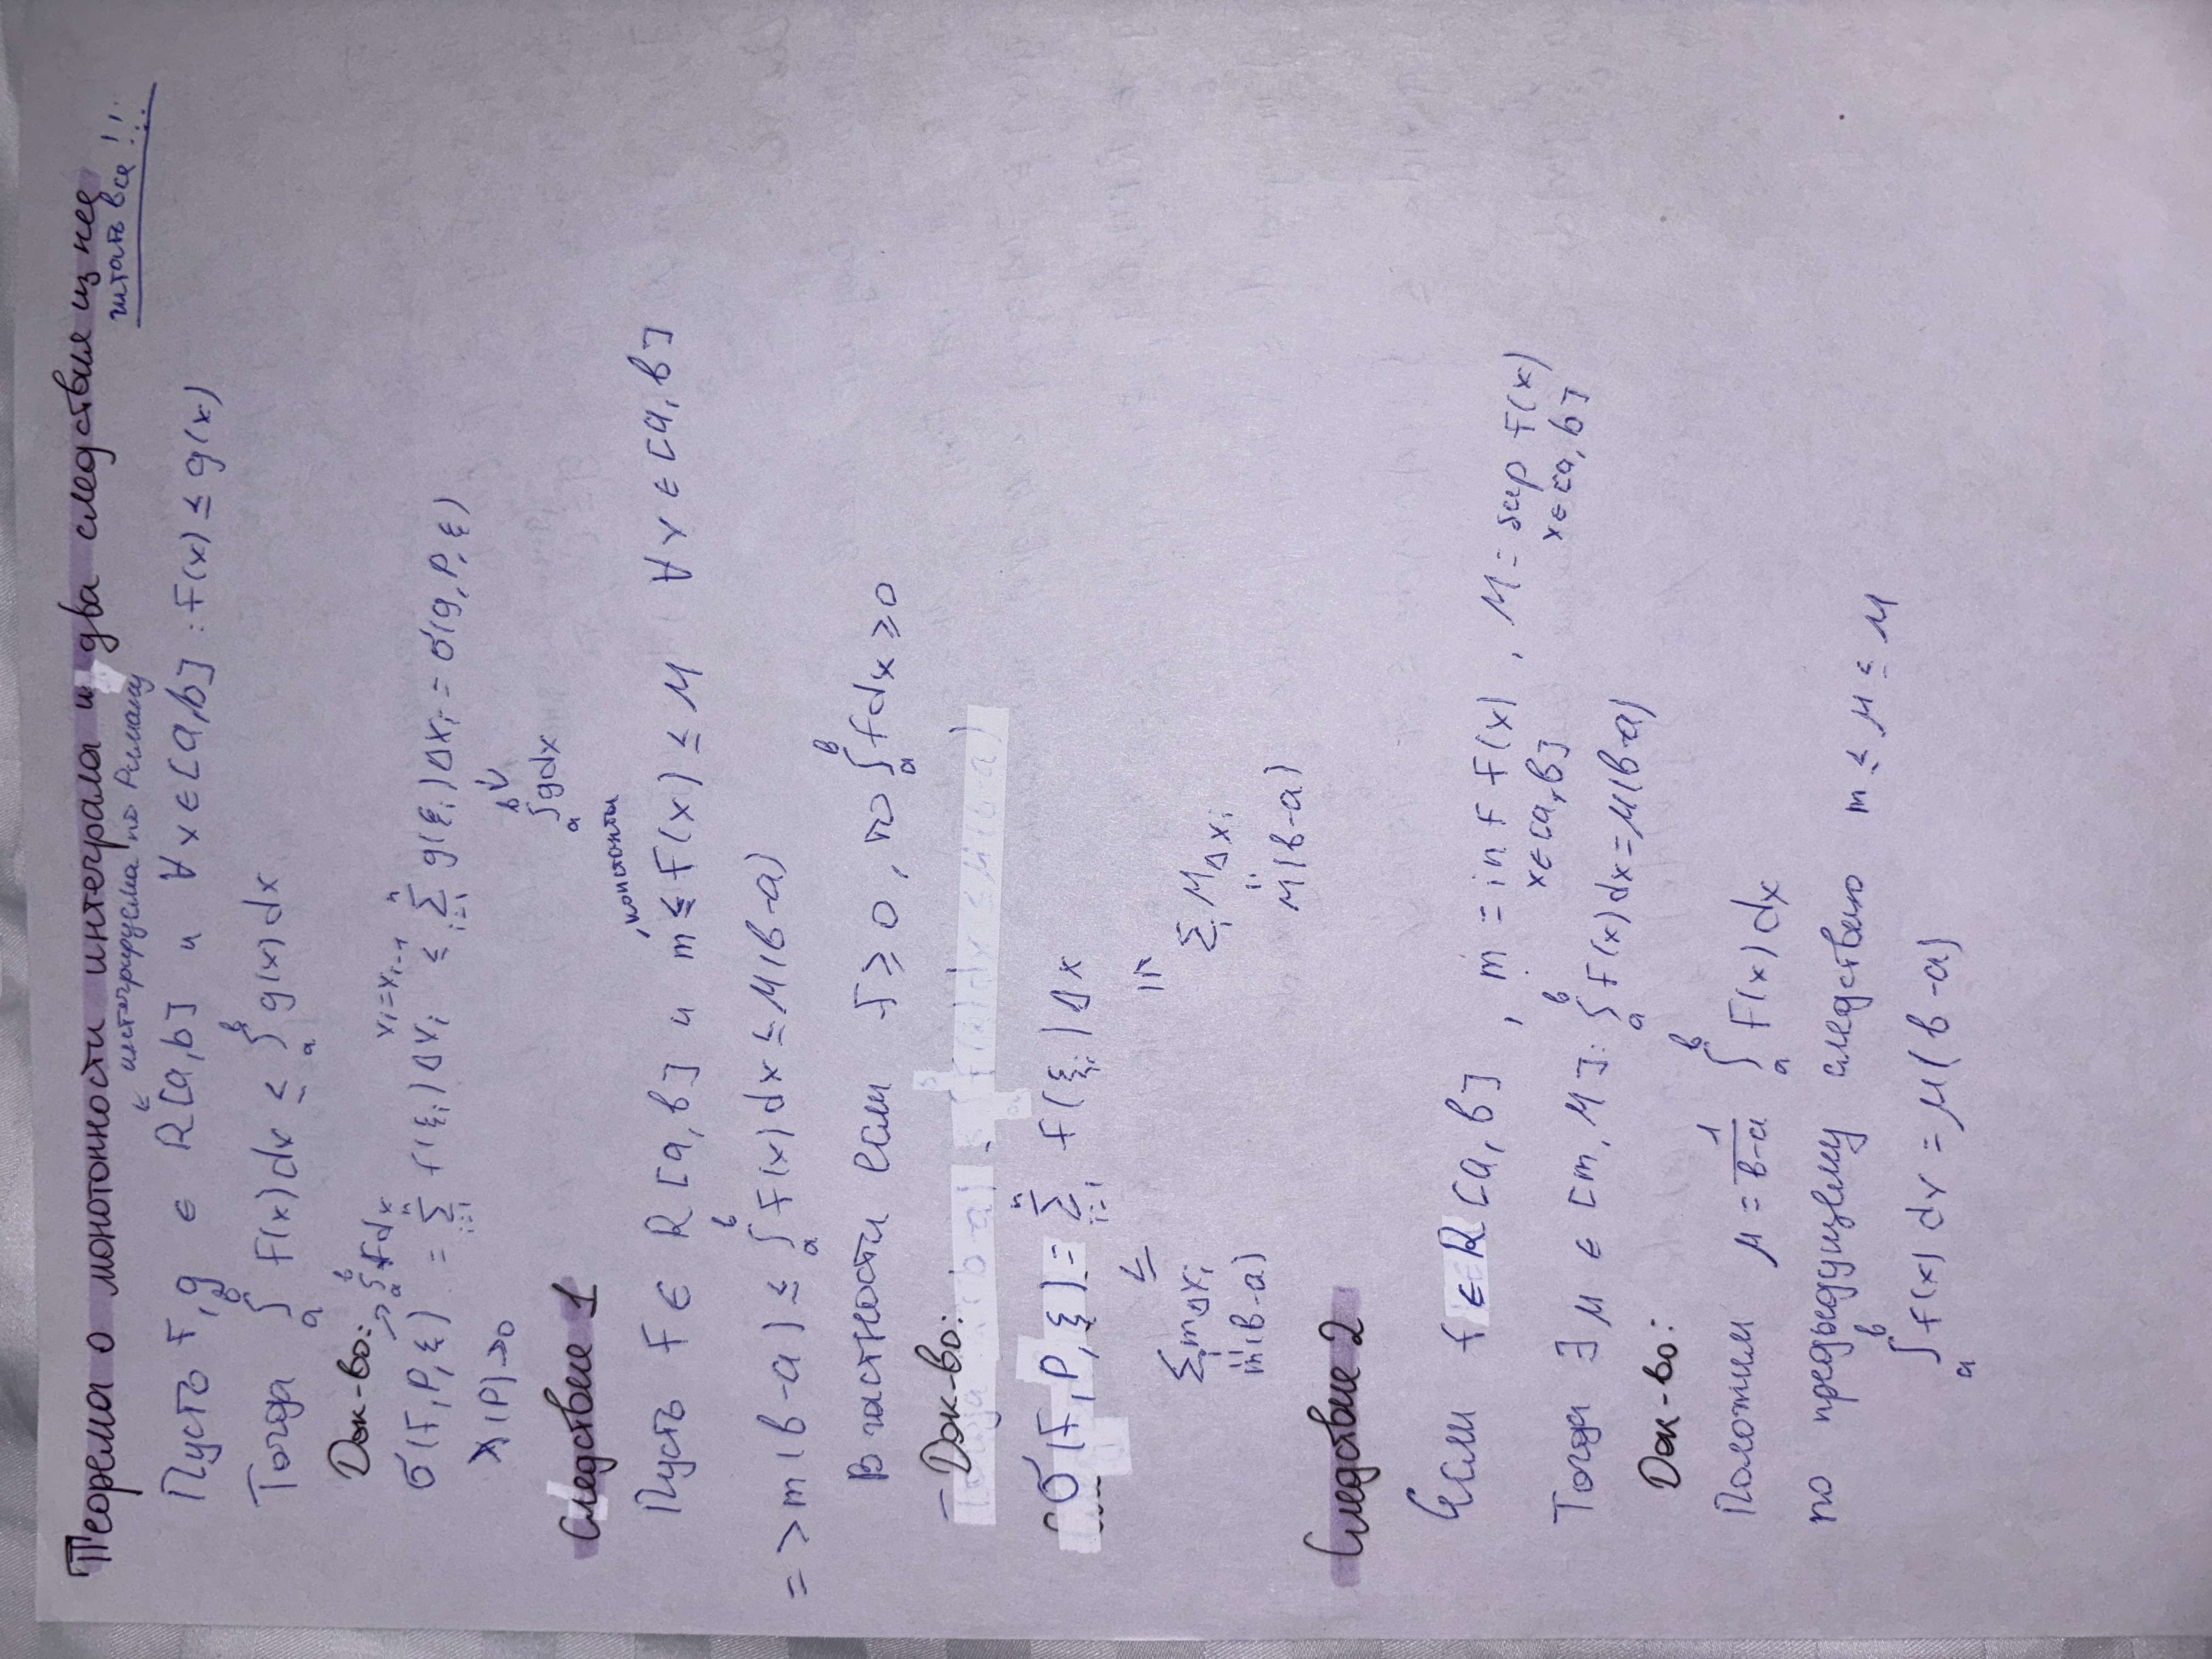 Теорема о монотонности интеграла и два следствия из нее
читать все!!!
интегрируема по Риману
Пусть f, g ∈ R[a,b] и ∀x∈[a,b] : f(x) ≤ g(x)
Тогда ∫_a^b f(x)dx ≤ ∫_a^b g(x)dx
Док-во:
→ ∫_a^b f dx
x_i = x_{i-1}
σ(f,P,ξ) = ∑_{i=1}^n f(ξ_i)Δx_i ≤ ∑_{i=1}^n g(ξ_i)Δx_i = σ(g,P,ξ)
λ(P)→0
↓
∫_a^b gdx
Следствие 1
константы
Пусть f ∈ R[a,b] и m ≤ f(x) ≤ M ∀x∈[a,b]
=> m(b-a) ≤ ∫_a^b f(x)dx ≤ M(b-a)
В частности если f ≥ 0, то ∫_a^b fdx ≥ 0
- Док-во:
σ(f,P,ξ) = ∑_{i=1}^n f(ξ_i)Δx
≤ ≤
∑_i mΔx_i ∑_i MΔx_i
= =
m(b-a) M(b-a)
Следствие 2
Если f ∈ R[a,b], m = inf f(x), M = sup f(x)
x∈[a,b] x∈[a,b]
Тогда ∃ μ ∈ [m, M]: ∫_a^b f(x)dx = μ(b-a)
Док-во:
Положим μ = 1/(b-a) ∫_a^b f(x)dx
по предыдущему следствию m ≤ μ ≤ M
∫_a^b f(x)dx = μ(b-a)